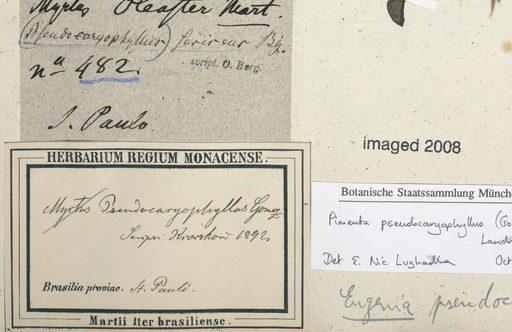 Myrtus Oleaster Mart.
(Pseudocaryophyllus) sericeus Bg.
script. O. Berg.
nᵃ 482.
S. Paulo
imaged 2008
HERBARIUM REGIUM MONACENSE.
Myrtus Pseudocaryophyllus Gomez
Scripsi Kiaerskou 1892
Brasilia provinc. St. Pauli.
Martii iter brasiliense.
Botanische Staatssammlung Münche
Pimenta pseudocaryophyllus (Go
Landr
Det E. Nic Lughadha Oct
Eugenia pseudoc